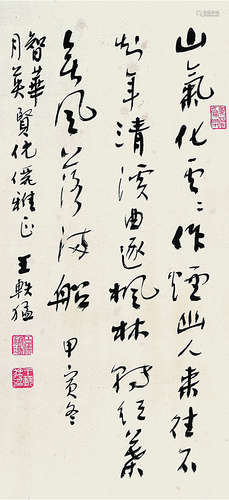 山氣化雲〻作煙幽人來往不
知年清溪曲逐楓林轉紅葉
無風落滿船 甲寅冬
智華
月英賢伉儷雅正 王軼猛